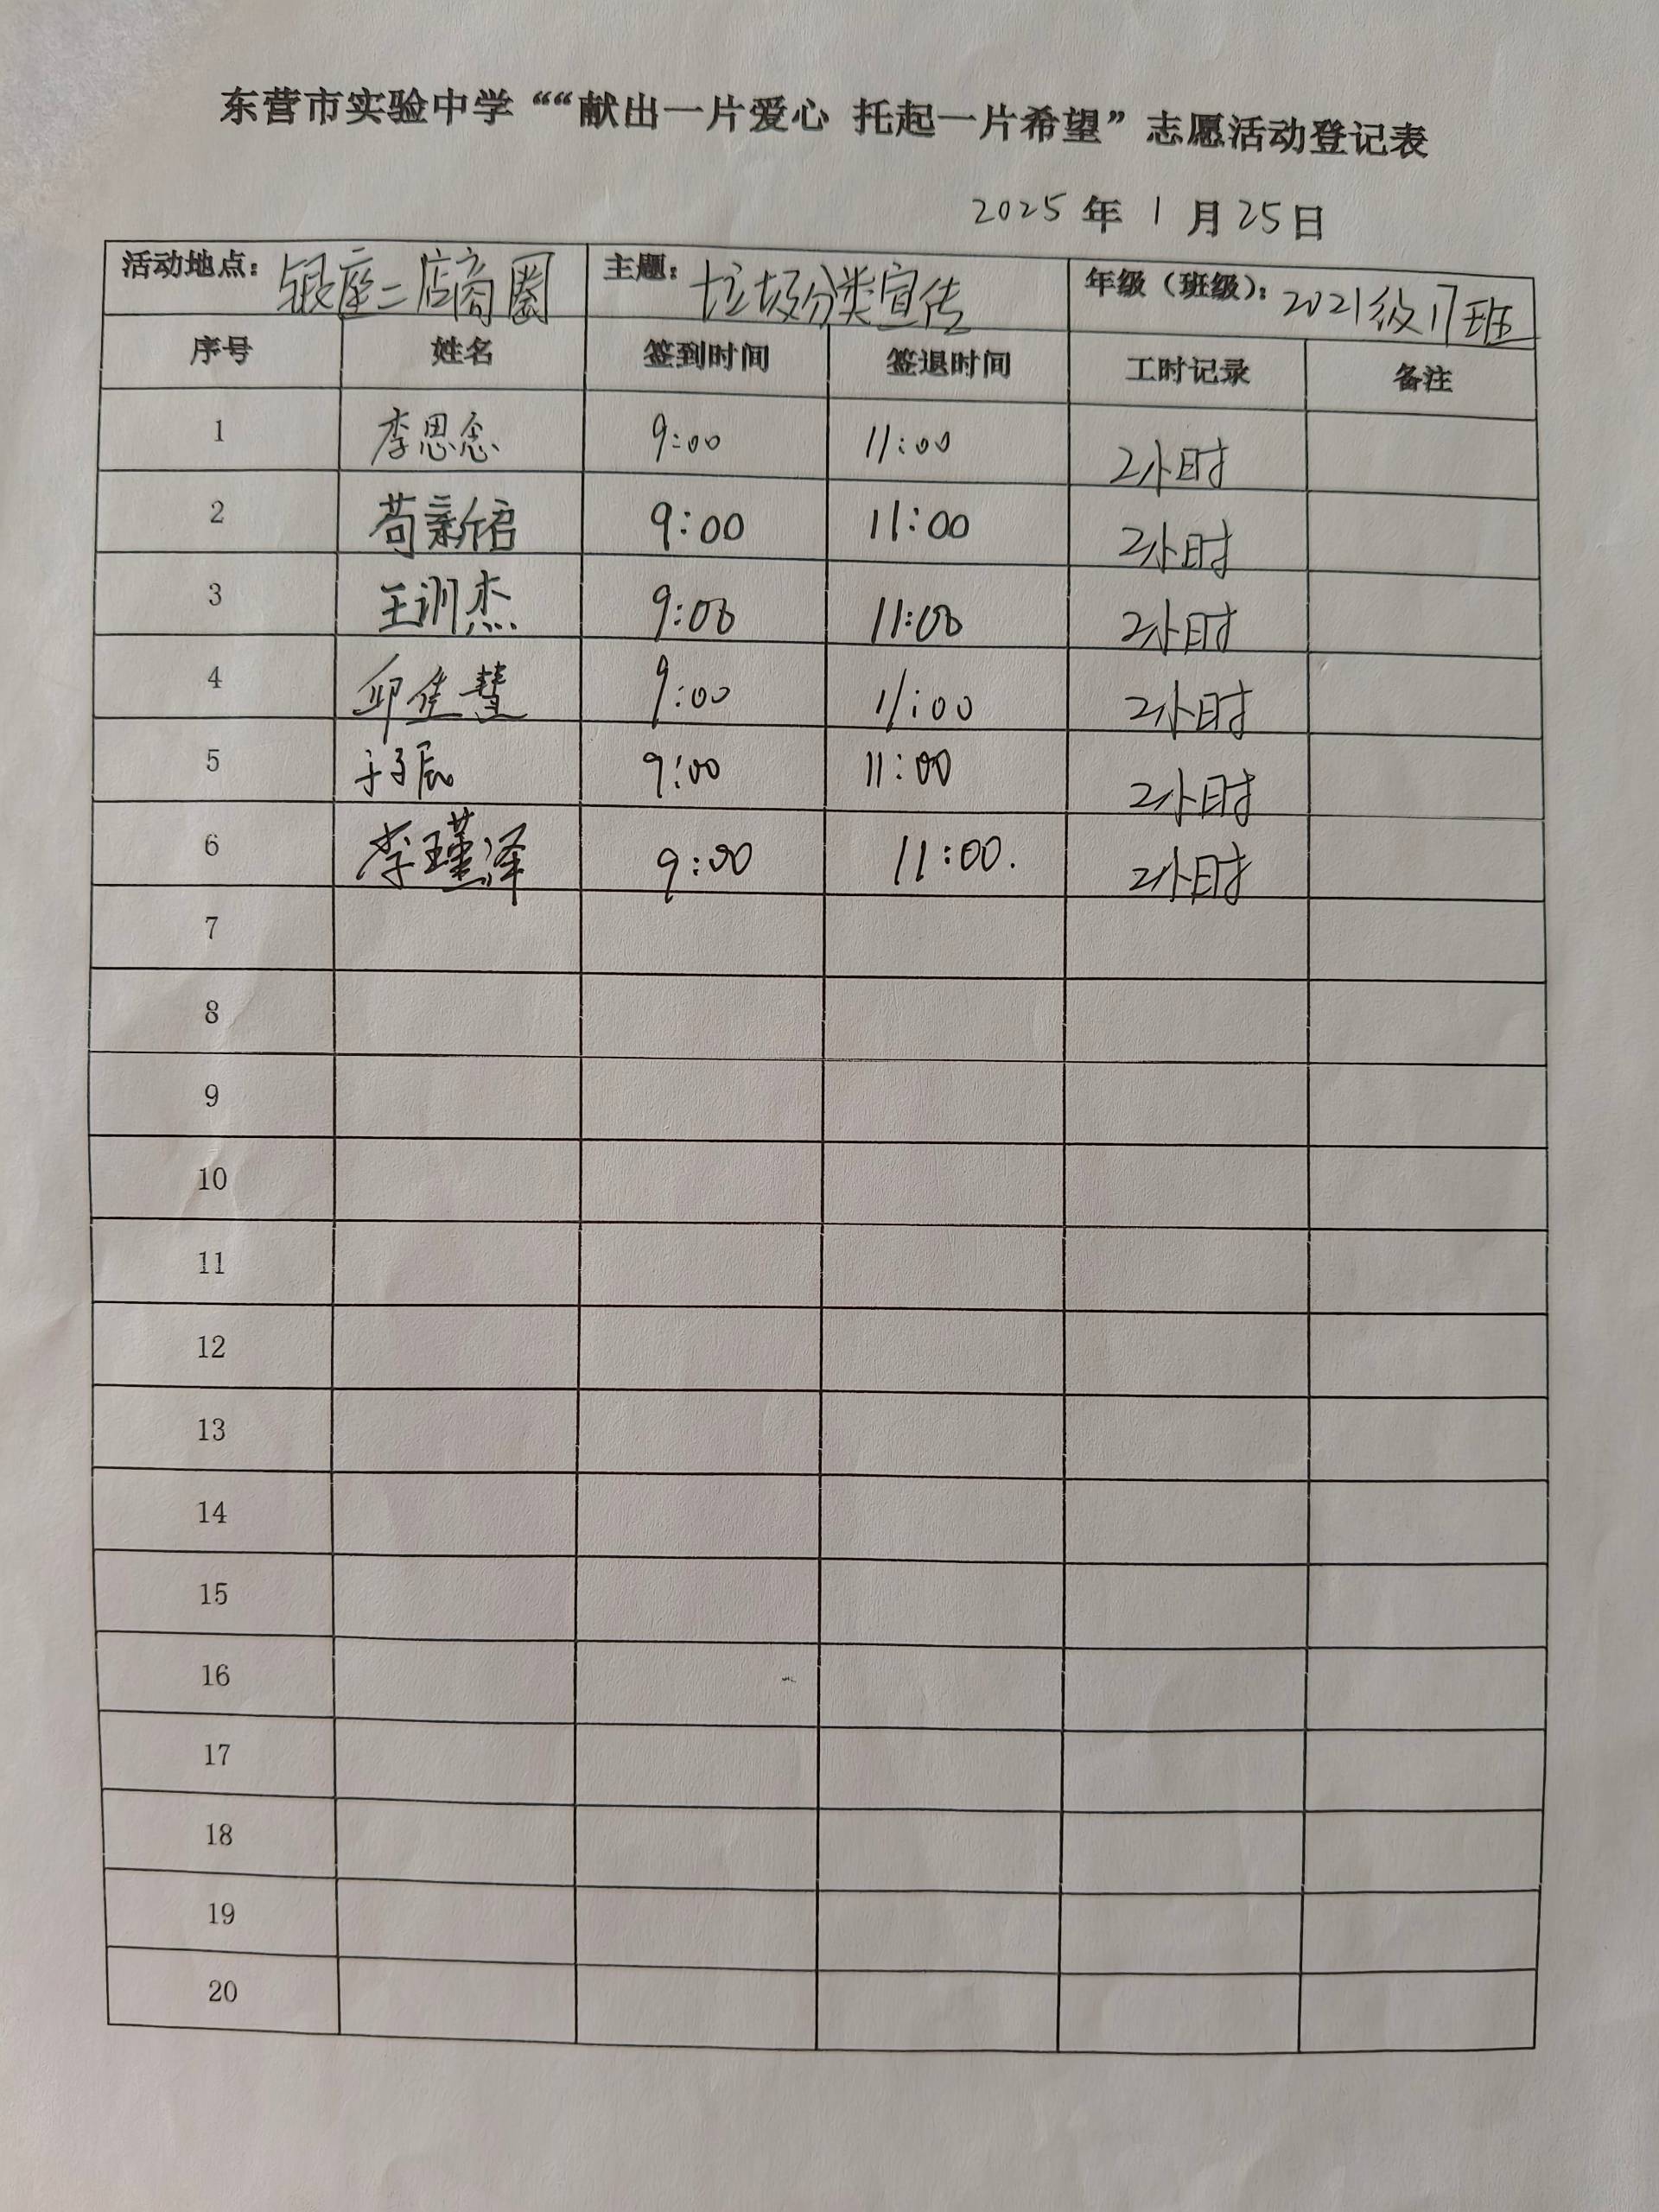 东营市实验中学““献出一片爱心 托起一片希望”志愿活动登记表
2025 年 1 月 25 日
活动地点：银座二店商圈 主题：垃圾分类宣传 年级（班级）：2021级17班
序号 姓名 签到时间 签退时间 工时记录 备注
1 李思念 9:00 11:00 2小时
2 苟新启 9:00 11:00 2小时
3 王训杰 9:00 11:00 2小时
4 邱佳慧 9:00 11:00 2小时
5 于子辰 9:00 11:00 2小时
6 李瑾泽 9:00 11:00. 2小时
7
8
9
10
11
12
13
14
15
16
17
18
19
20